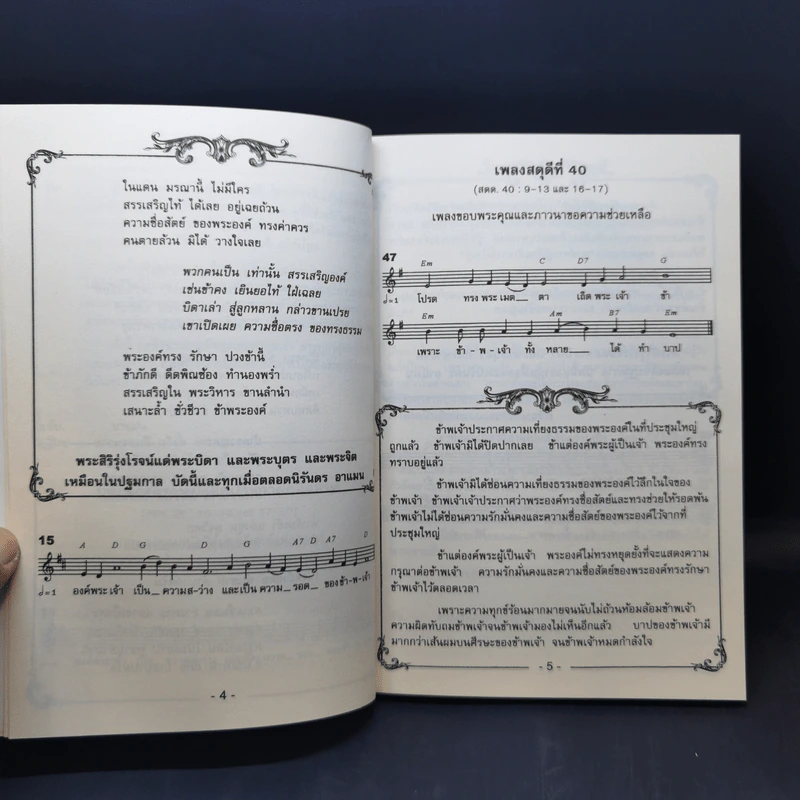 ในแดน มรณานี้ ไม่มีใคร
สรรเสริญไท้ ได้เลย อยู่เฉยถ้วน
ความซื่อสัตย์ ของพระองค์ ทรงค่าควร
คนตายล้วน มิได้ วางใจเลย
พวกคนเป็น เท่านั้น สรรเสริญองค์
เช่นข้าคง เยินยอไท้ ใฝ่เฉลย
บิดาเล่า สู่ลูกหลาน กล่าวขานเปรย
เขาเปิดเผย ความซื่อตรง ของทรงธรรม
พระองค์ทรง รักษา ปวงข้านี้
ข้าภักดี ดีดพิณซ้อง ทำนองพร่ำ
สรรเสริญใน พระวิหาร ขานลำนำ
เสนาะล้ำ ชั่วชีวา ข้าพระองค์
พระสิริรุ่งโรจน์แด่พระบิดา และพระบุตร และพระจิต
เหมือนในปฐมกาล บัดนี้และทุกเมื่อตลอดนิรันดร อาแมน
15
A D G D G A7 D A7 D
=1 องค์พระเจ้า เป็น_ ความส-ว่าง และเป็นความ_รอด_ ของข้า-พ-เจ้า
- 4 -
เพลงสดุดีที่ 40
(สดด. 40 : 9-13 และ 16-17)
เพลงขอบพระคุณและภาวนาขอความช่วยเหลือ
47
Em C D7 G
=1 โปรด ทรงพระเมต_ ตา เถิดพระเจ้า ข้า
Em Am B7 Em
เพราะ ข้า-พ-เจ้า ทั้ง หลาย_ ได้ ทำ บาป
ข้าพเจ้าประกาศความเที่ยงธรรมของพระองค์ในที่ประชุมใหญ่
ถูกแล้ว ข้าพเจ้ามิได้ปิดปากเลย ข้าแต่องค์พระผู้เป็นเจ้า พระองค์ทรง
ทราบอยู่แล้ว
ข้าพเจ้ามิได้ซ่อนความเที่ยงธรรมของพระองค์ไว้ลึกในใจของ
ข้าพเจ้า ข้าพเจ้าเจ้าประกาศว่าพระองค์ทรงซื่อสัตย์และทรงช่วยให้รอดพ้น
ข้าพเจ้าไม่ได้ซ่อนความรักมั่นคงและความซื่อสัตย์ของพระองค์ไว้จากที่
ประชุมใหญ่
ข้าแต่องค์พระผู้เป็นเจ้า พระองค์ไม่ทรงหยุดยั้งที่จะแสดงความ
กรุณาต่อข้าพเจ้า ความรักมั่นคงและความซื่อสัตย์ของพระองค์ทรงรักษา
ข้าพเจ้าไว้ตลอดเวลา
เพราะความทุกข์ร้อนมากมายจนนับไม่ถ้วนห้อมล้อมข้าพเจ้า
ความผิดทับถมข้าพเจ้าจนข้าพเจ้ามองไม่เห็นอีกแล้ว บาปของข้าพเจ้ามี
มากกว่าเส้นผมบนศีรษะของข้าพเจ้า จนข้าพเจ้าหมดกำลังใจ
- 5 -